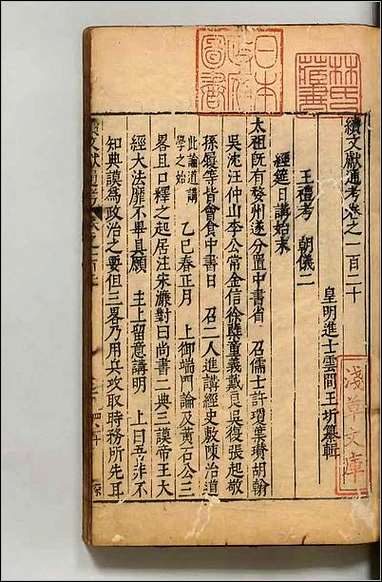 續文獻通考卷之一百二十
皇明進士雲間王圻纂輯
王禮考 朝儀二
經筵日講始末
太祖既有婺州遂分置中書省 召儒士許瑗葉瓚胡翰
吳沈汪仲山李公常金信徐孳童義戴良吳履張起敬
孫履等皆會食中書日 召二人進講經史敷陳治道
此論道講
學之始
乙巳春正月 上御端門論及黃石公三
畧且口釋之起居注宋濂對曰尚書二典三謨帝王大
經大法靡不畢具願 主上留意講明 上曰吾非不
知典謨為政治之要但三畧乃用兵攻取時務所先耳
日本
政府
圖書
林氏
藏書
淺草文庫